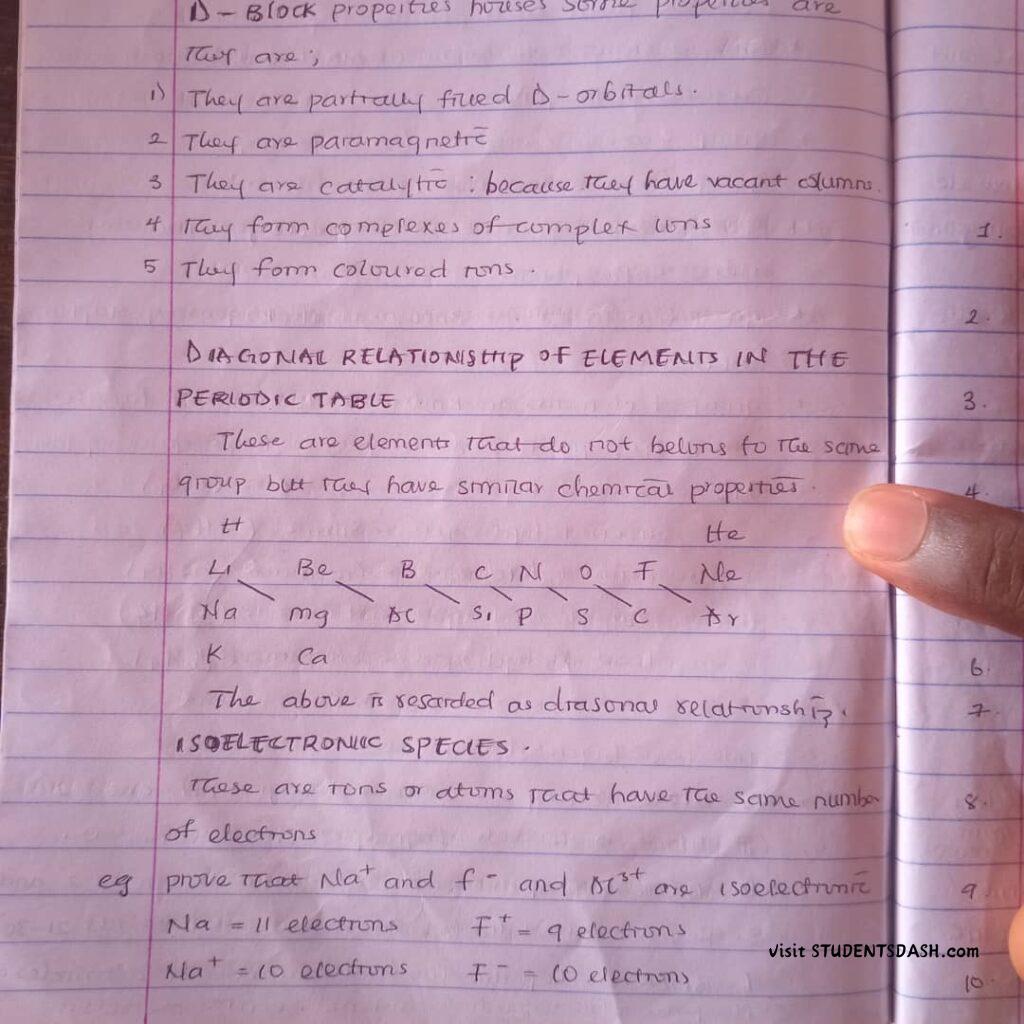 D - Block properties houses some properties are
They are;
1) They are partrally filled D - orbitals.
2 They are paramagnetic
3 They are catalytic : because they have vacant columns.
4 They form complexes of complex ions
5 They form coloured ions.
DIAGONAL RELATIONSHIP OF ELEMENTS IN THE
PERIODIC TABLE
These are elements that do not belons to the same
group but they have similar chemical properties.
H He
Li Be B C N O F Ne
Na mg Al Si P S C Ar
K Ca
The above is resarded as diasonal relationship.
ISOELECTRONIC SPECIES.
These are ions or atoms that have the same number
of electrons
eg prove that Na⁺ and f⁻ and Al³⁺ are isoelectronic
Na = 11 electrons F⁺ = 9 electrons
Na⁺ = 10 electrons F⁻ = 10 electrons
visit STUDENTSDASH.com
1.
2.
3.
4.
6.
7.
8.
9.
10.